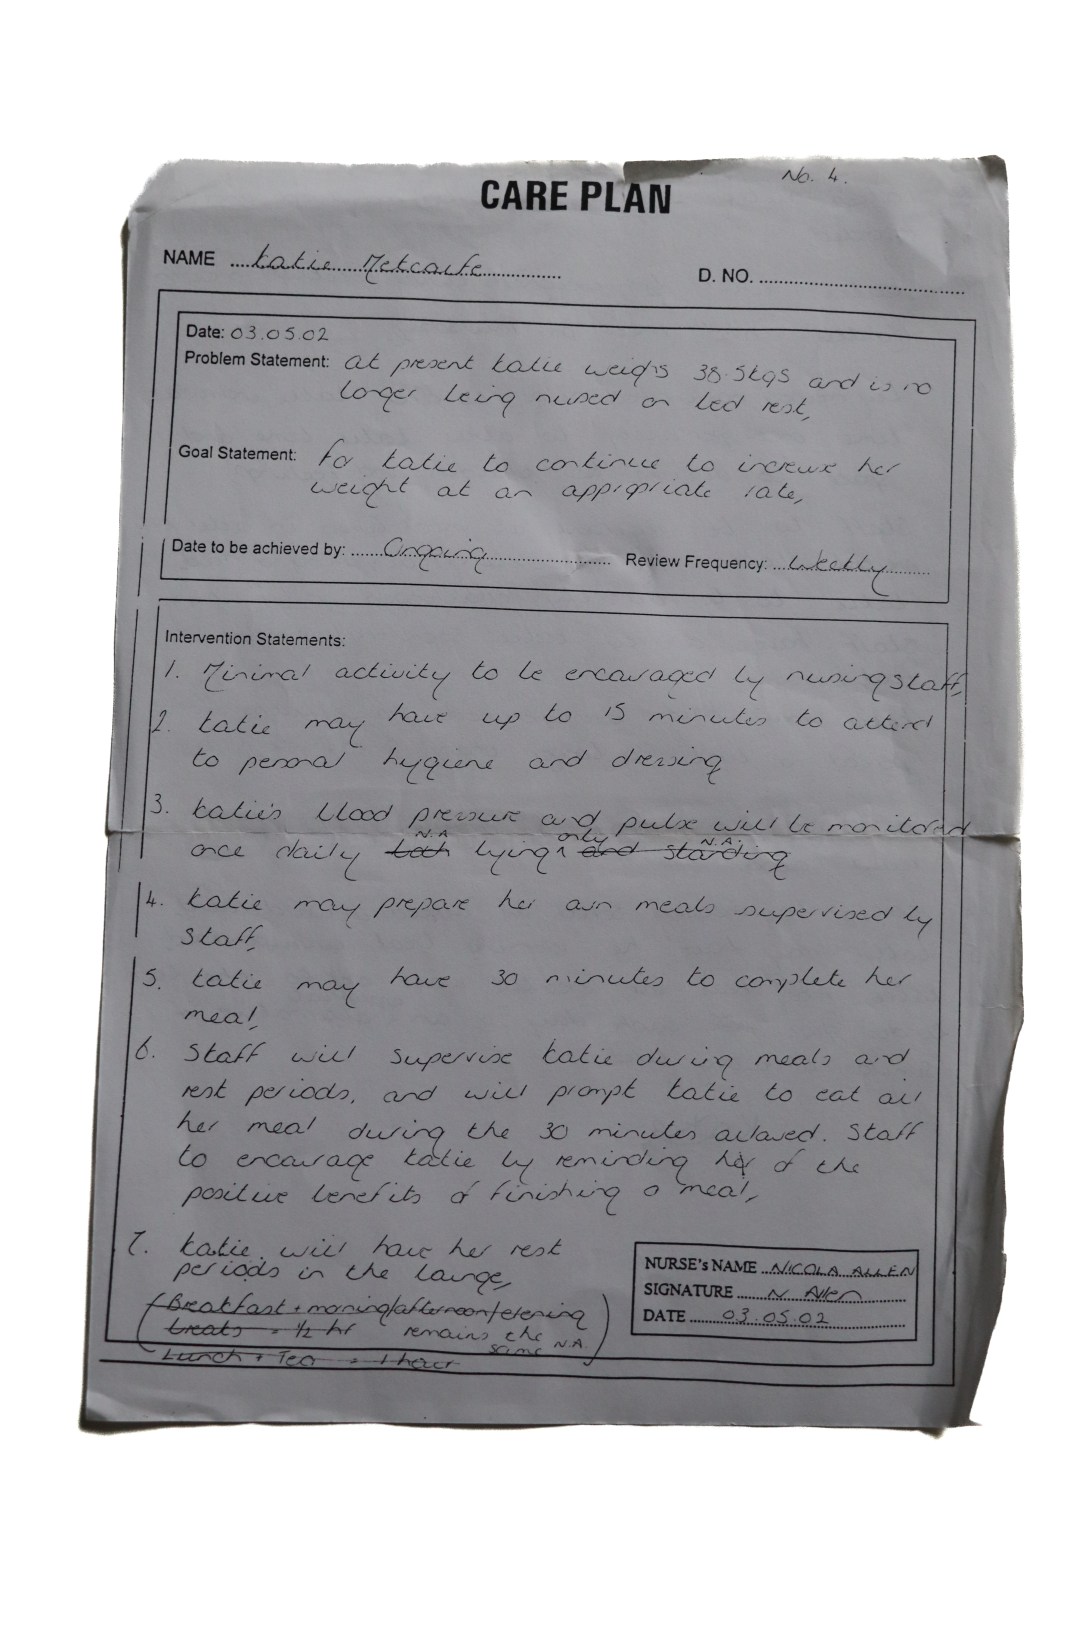 No. 4.
CARE PLAN
NAME Katie Metcalfe
D. NO.
Date: 03.05.02
Problem Statement: at present Katie weighs 38.5kgs and is no
longer being nursed on bed rest,
Goal Statement: for Katie to continue to increase her
weight at an appropriate rate,
Date to be achieved by: Ongoing Review Frequency: Weekly
Intervention Statements:
1. Minimal activity to be encouraged by nursing staff,
2. Katie may have up to 15 minutes to attend
to personal hygiene and dressing
3. Katie's blood pressure and pulse will be monitored
N.A only N.A.
once daily both lying ^ and standing
4. Katie may prepare her own meals supervised by
staff,
5. Katie may have 30 minutes to complete her
meal,
6. Staff will supervise Katie during meals and
rest periods, and will prompt Katie to eat all
her meal during the 30 minutes allowed. Staff
to encourage Katie by reminding her of the
positive benefits of finishing a meal,
7. Katie will have her rest
periods in the lounge,
(Breakfast + morning/afternoon/evening
treats = 1/2 hr remains the
same N.A.)
Lunch + Tea = 1 hour
NURSE's NAME NICOLA ALLEN
SIGNATURE N Allen
DATE 03.05.02